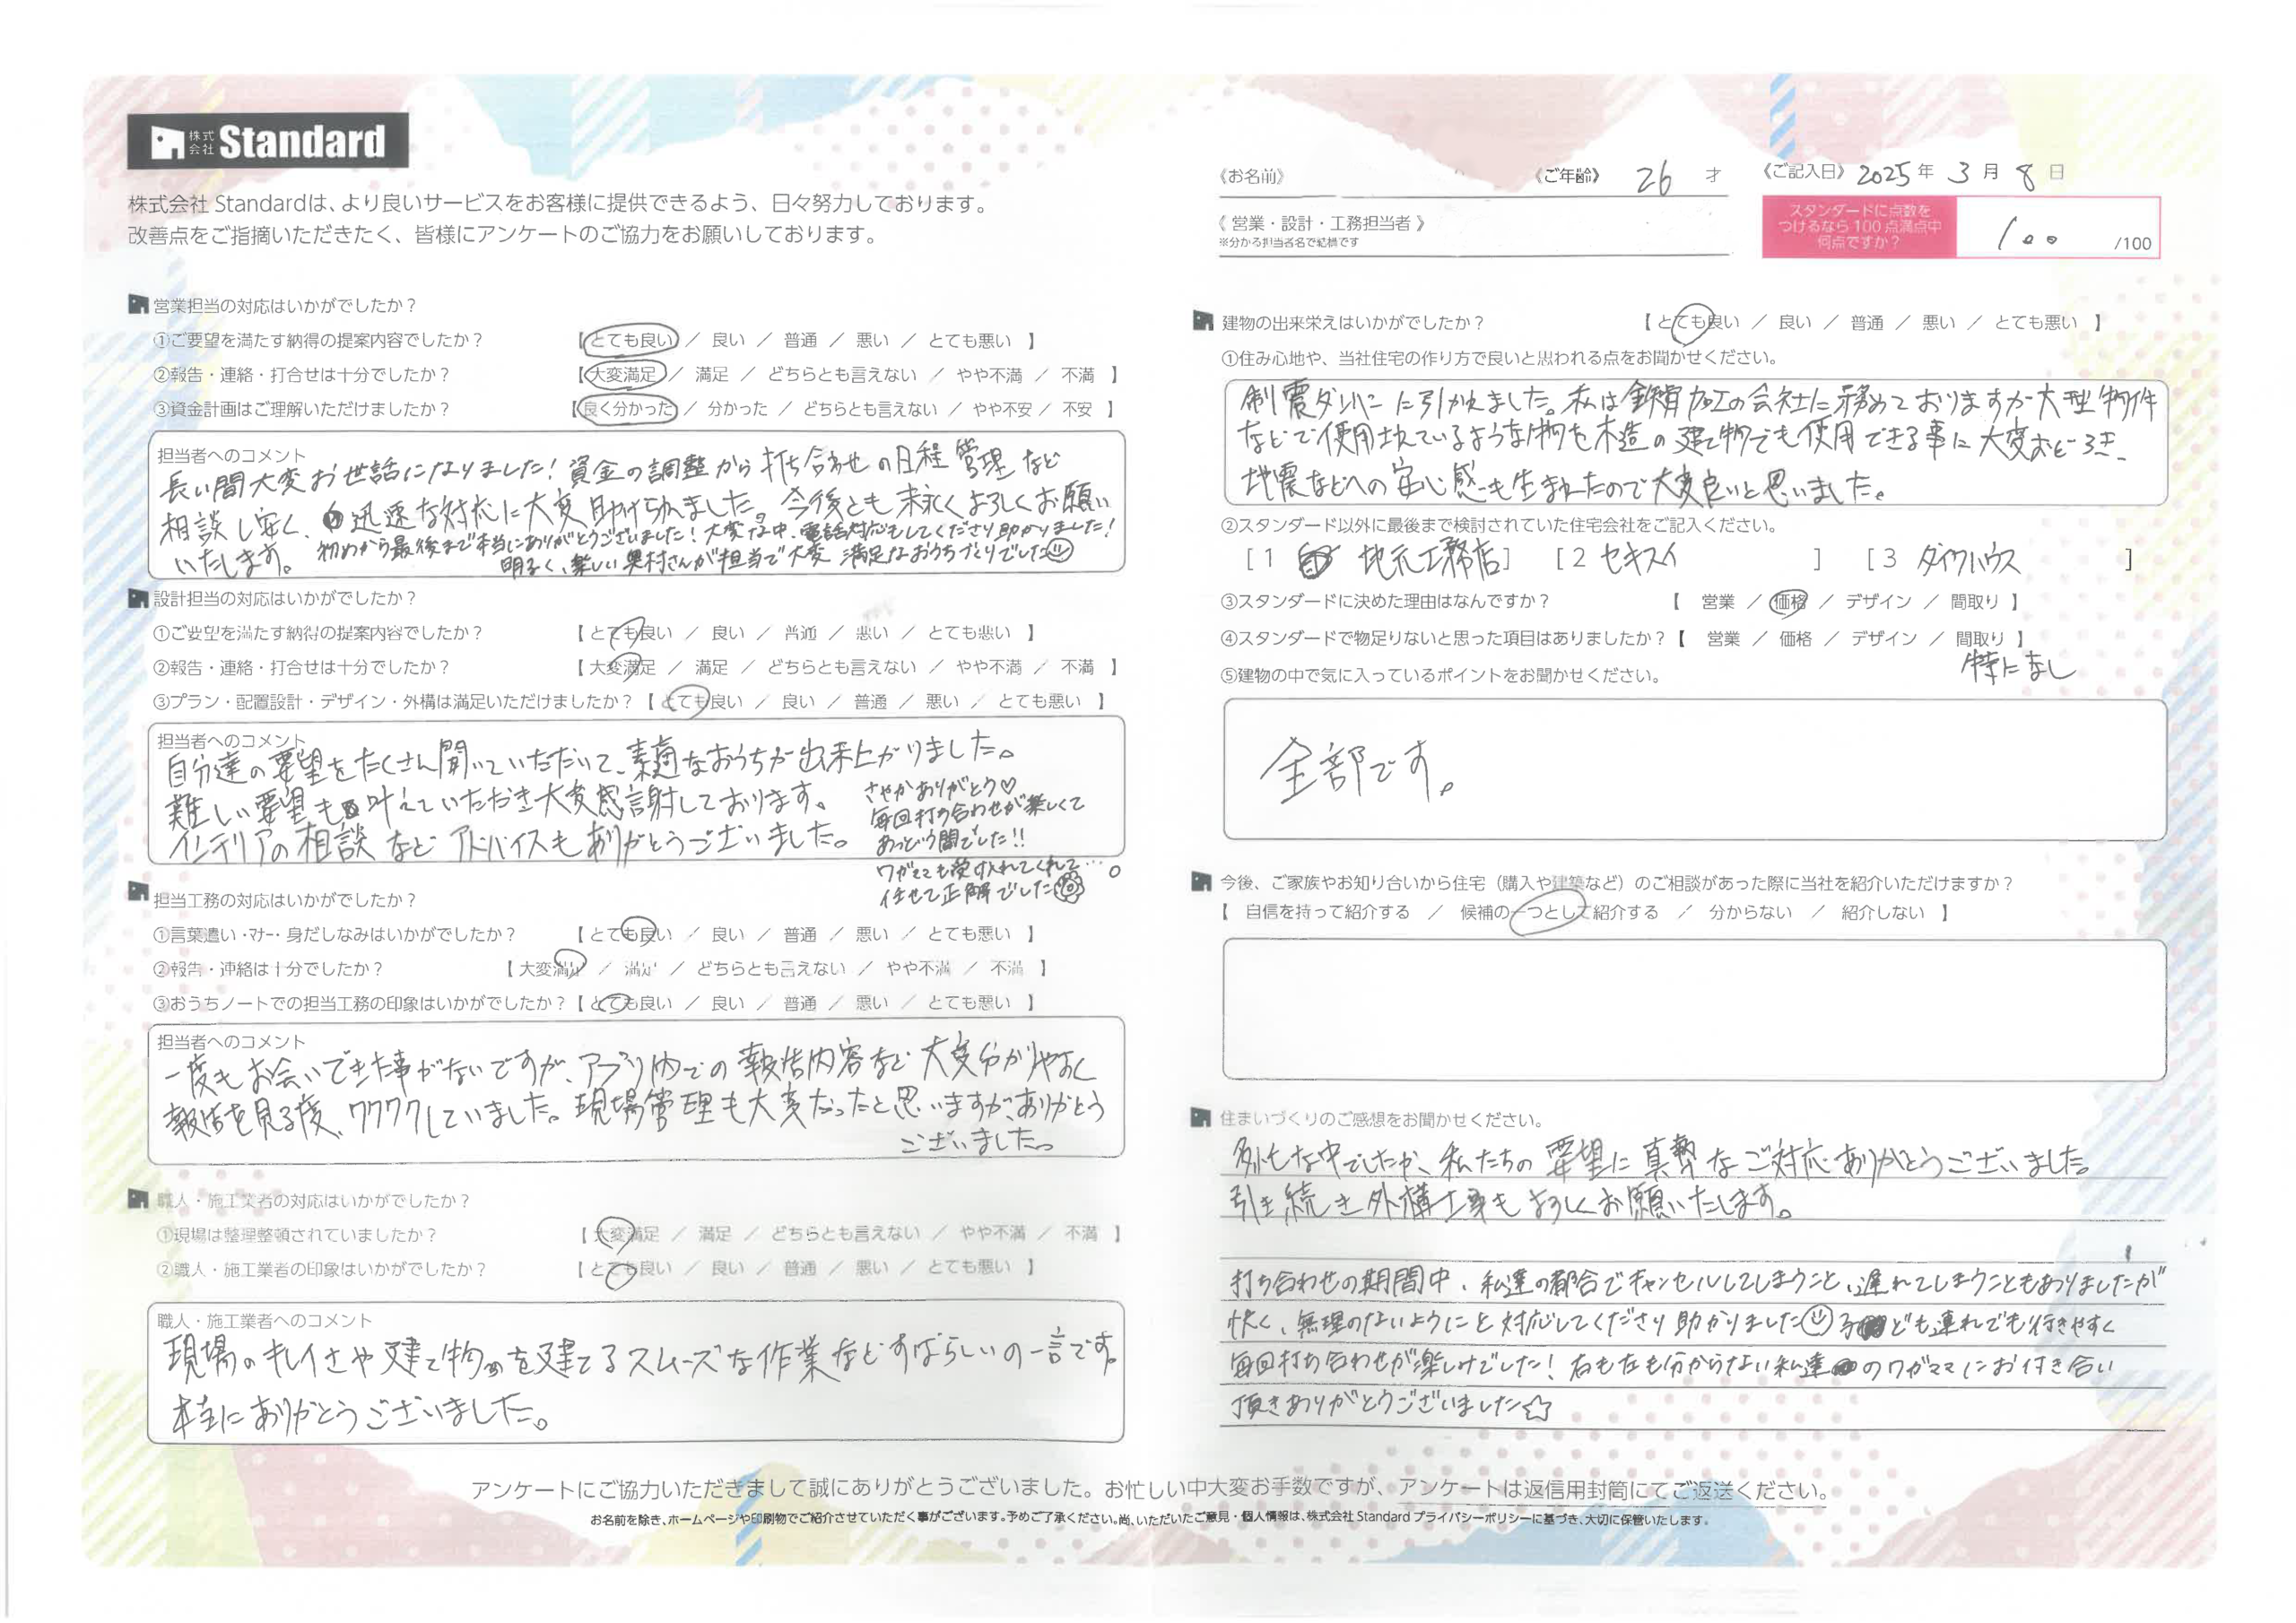 株式会社 Standard
株式会社 Standardは、より良いサービスをお客様に提供できるよう、日々努力しております。
改善点をご指摘いただきたく、皆様にアンケートのご協力をお願いしております。
《お名前》
《ご年齢》 26 才
《ご記入日》 2025 年 3 月 8 日
《 営業・設計・工務担当者 》
※分かる担当者名で結構です
スタンダードに点数を
つけるなら 100 点満点中
何点ですか？
100 /100
営業担当の対応はいかがでしたか？
①ご要望を満たす納得の提案内容でしたか？ 【 とても良い ／ 良い ／ 普通 ／ 悪い ／ とても悪い 】
②報告・連絡・打合せは十分でしたか？ 【 大変満足 ／ 満足 ／ どちらとも言えない ／ やや不満 ／ 不満 】
③資金計画はご理解いただけましたか？ 【 良く分かった ／ 分かった ／ どちらとも言えない ／ やや不安 ／ 不安 】
担当者へのコメント
長い間大変お世話になりました！資金の調整から打ち合わせの日程管理など
相談し安く、迅速な対応に大変助けられました。今後とも末永くよろしくお願い
いたします。
初めから最後まで本当にありがとうございました！大変な中、電話対応もしてくださり助かりました！
明るく、楽しい奥村さんが担当で大変満足なおうちづくりでした
設計担当の対応はいかがでしたか？
①ご要望を満たす納得の提案内容でしたか？ 【 とても良い ／ 良い ／ 普通 ／ 悪い ／ とても悪い 】
②報告・連絡・打合せは十分でしたか？ 【 大変満足 ／ 満足 ／ どちらとも言えない ／ やや不満 ／ 不満 】
③プラン・配置設計・デザイン・外構は満足いただけましたか？【 とても良い ／ 良い ／ 普通 ／ 悪い ／ とても悪い 】
担当者へのコメント
自分達の要望をたくさん聞いていただいて、素適なおうちが出来上がりました。
難しい要望も叶えていただき大変感謝しております。
インテリアの相談などアドバイスもありがとうございました。
さやかありがとう♡
毎回打ち合わせが楽しくて
あっという間でした!!
ワガママも受け入れてくれて…。
任せて正解でした
担当工務の対応はいかがでしたか？
①言葉遣い・マナー・身だしなみはいかがでしたか？ 【 とても良い ／ 良い ／ 普通 ／ 悪い ／ とても悪い 】
②報告・連絡は十分でしたか？ 【 大変満足 ／ 満足 ／ どちらとも言えない ／ やや不満 ／ 不満 】
③おうちノートでの担当工務の印象はいかがでしたか？【 とても良い ／ 良い ／ 普通 ／ 悪い ／ とても悪い 】
担当者へのコメント
一度もお会いできた事がないですが、アプリ内での報告内容など大変分かりやすく
報告を見る度、ワクワクしていました。現場管理も大変だったと思いますが、ありがとう
ございました。
職人・施工業者の対応はいかがでしたか？
①現場は整理整頓されていましたか？ 【 大変満足 ／ 満足 ／ どちらとも言えない ／ やや不満 ／ 不満 】
②職人・施工業者の印象はいかがでしたか？ 【 とても良い ／ 良い ／ 普通 ／ 悪い ／ とても悪い 】
職人・施工業者へのコメント
現場のキレイさや建て物を建てるスムーズな作業などすばらしいの一言です。
本当にありがとうございました。
建物の出来栄えはいかがでしたか？ 【 とても良い ／ 良い ／ 普通 ／ 悪い ／ とても悪い 】
①住み心地や、当社住宅の作り方で良いと思われる点をお聞かせください。
制震ダンパーに引かれました。私は鉄骨加工の会社に務めておりますが大型物件
などで使用されているような物を木造の建て物でも使用できる事に大変おどろき、
地震などへの安心感も生まれたので大変良いと思いました。
②スタンダード以外に最後まで検討されていた住宅会社をご記入ください。
[ 1 地元工務店 ] [ 2 セキスイ ] [ 3 ダイワハウス ]
③スタンダードに決めた理由はなんですか？ 【 営業 ／ 価格 ／ デザイン ／ 間取り 】
④スタンダードで物足りないと思った項目はありましたか？【 営業 ／ 価格 ／ デザイン ／ 間取り 】
特になし
⑤建物の中で気に入っているポイントをお聞かせください。
全部です。
今後、ご家族やお知り合いから住宅（購入や建築など）のご相談があった際に当社を紹介いただけますか？
【 自信を持って紹介する ／ 候補の一つとして紹介する ／ 分からない ／ 紹介しない 】
住まいづくりのご感想をお聞かせください。
多忙な中でしたが、私たちの要望に真摯なご対応ありがとうございました。
引き続き外構工事もよろしくお願いいたします。
打ち合わせの期間中、私達の都合でキャンセルしてしまうこと、遅れてしまうこともありましたが
快く、無理のないようにと対応してくださり助かりました 子ども連れでも行きやすく
毎回打ち合わせが楽しみでした！右も左も分からない私達のワガママにお付き合い
頂きありがとうございました☆
アンケートにご協力いただきまして誠にありがとうございました。お忙しい中大変お手数ですが、アンケートは返信用封筒にてご返送ください。
お名前を除き、ホームページや印刷物でご紹介させていただく事がございます。予めご了承ください。尚、いただいたご意見・個人情報は、株式会社 Standard プライバシーポリシーに基づき、大切に保管いたします。